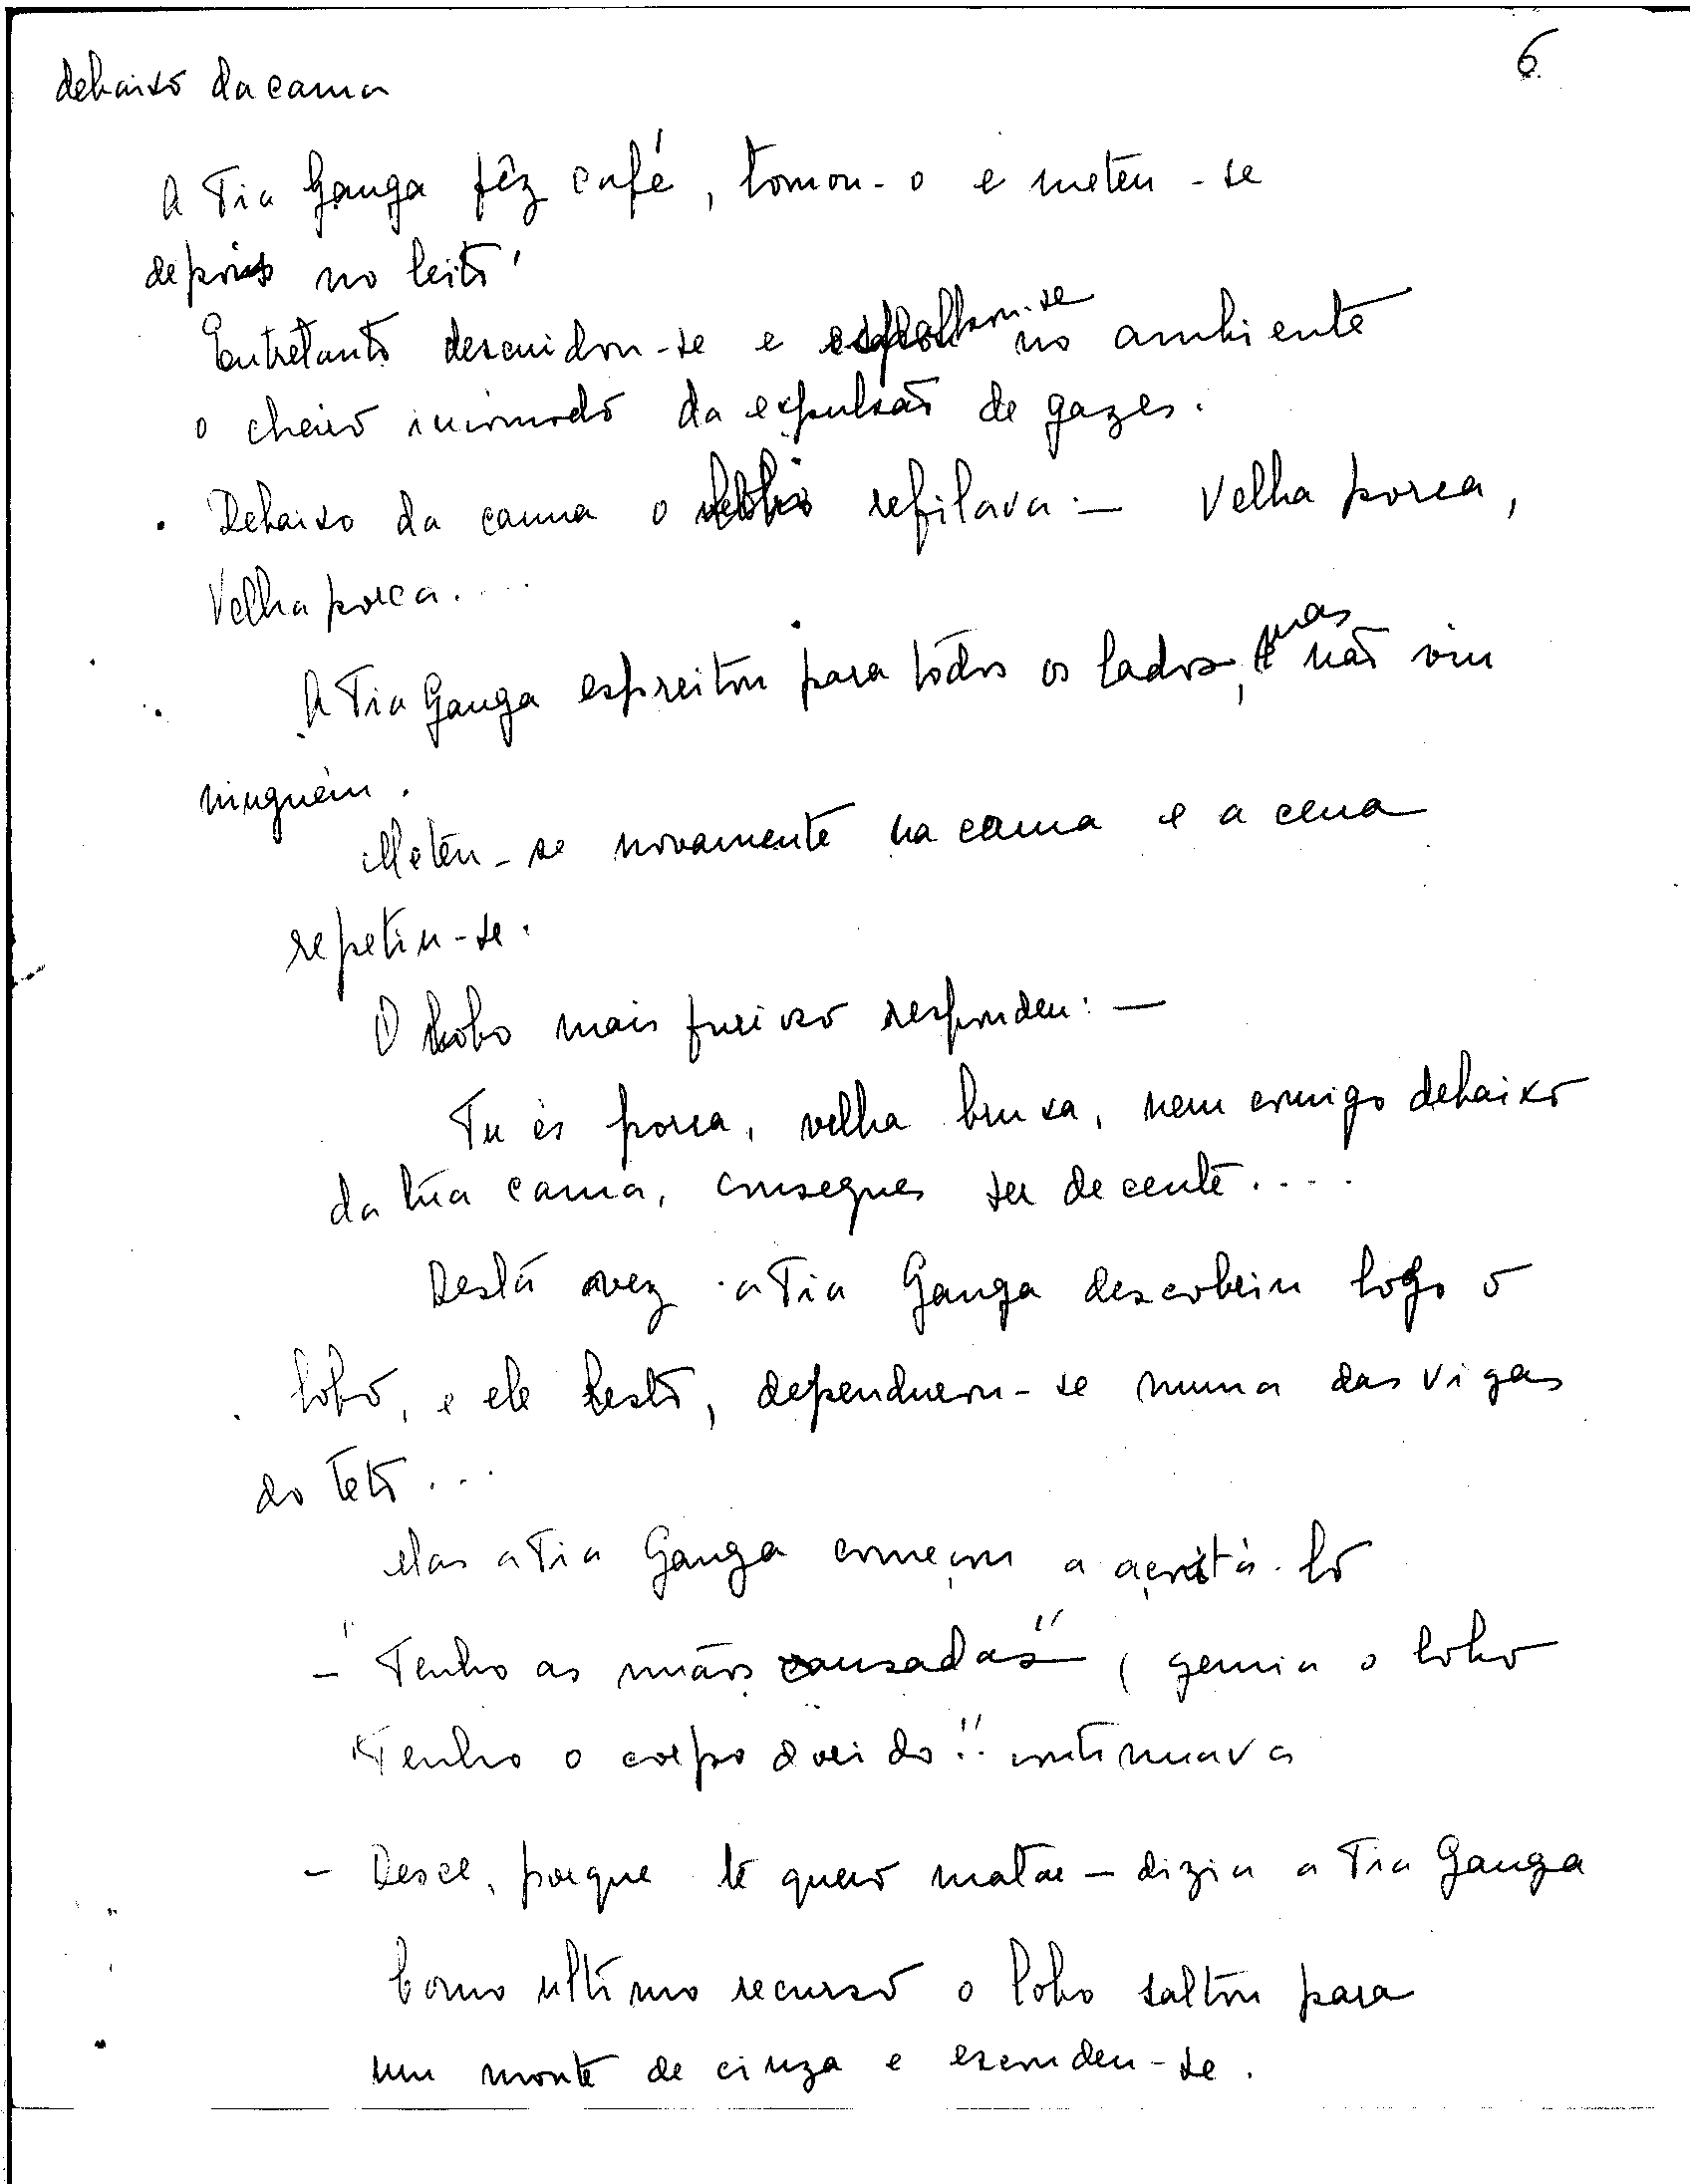 6
debaixo da cama
A Tia Ganga fêz café, tomou-o e meteu-se
depois no leito.
Entretanto descuidou-se e espalhou-se no ambiente
o cheiro incomodo da expulsão de gazes.
Debaixo da cama o lobo refilava: — Velha porca,
Velha porca....
A Tia Ganga espreitou para todos os lados, mas não viu
ninguém.
Meteu-se novamente na cama e a cena
repetiu-se.
O Lobo mais furioso respondeu: —
Tu és porca, velha bruxa, nem comigo debaixo
da tua cama, consegues ser decente....
Desta vez a Tia Ganga descobriu logo o
lobo, e ele lesto, dependurou-se numa das vigas
do teto...
Mas a Tia Ganga começou a açoitá-lo
- "Tenho as mãos cansadas" (gemia o lobo
"Tenho o corpo doido!" continuava
- Desce, porque te quero matar — dizia a Tia Ganga
Como ultimo recurso o lobo saltou para
um monte de cinza e escondeu-se.